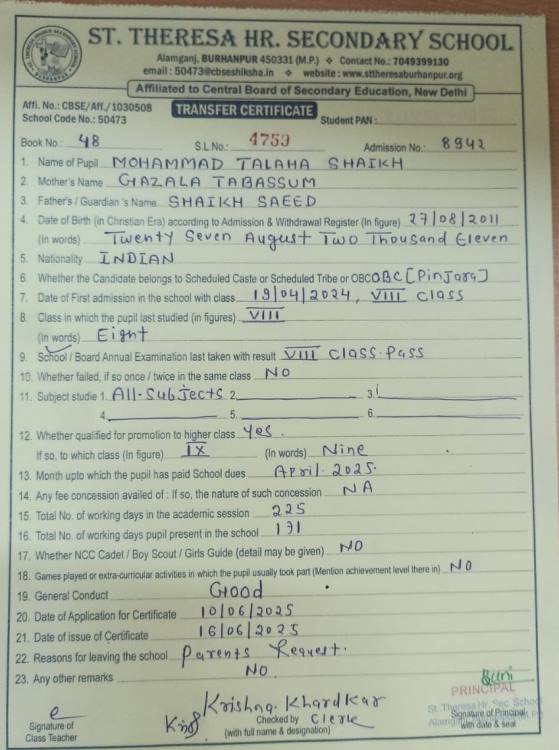 ST. THERESA HR. SECONDARY SCHOOL
Alamganj, BURHANPUR 450331 (M.P.) ❖ Contact No.: 7049399130
email : 50473@cbseshiksha.in ❖ website : www.sttheresaburhanpur.org
Affiliated to Central Board of Secondary Education, New Delhi
Affi. No.: CBSE/Aff./1030508
School Code No.: 50473
TRANSFER CERTIFICATE
Student PAN :
Book No.: 48 S.L No.: 4759 Admission No.: 8942
1. Name of Pupil MOHAMMAD TALAHA SHAIKH
2. Mother's Name GAZALA TABASSUM
3. Father's / Guardian's Name SHAIKH SAEED
4. Date of Birth (in Christian Era) according to Admission & Withdrawal Register (In figure) 27/08/2011
(in words) Twenty Seven August Two Thousand Eleven
5. Nationality INDIAN
6. Whether the Candidate belongs to Scheduled Caste or Scheduled Tribe or OBC OBC [Pinjara]
7. Date of First admission in the school with class 19/04/2024, VIII Class
8. Class in which the pupil last studied (in figures) VIII
(in words) Eight
9. School / Board Annual Examination last taken with result VIII Class. Pass
10. Whether failed, if so once / twice in the same class NO
11. Subject studie 1. All-Subjects 2. 3.
4. 5. 6.
12. Whether qualified for promotion to higher class Yes.
If so, to which class (In figure) IX (In words) Nine
13. Month upto which the pupil has paid School dues April. 2025.
14. Any fee concession availed of : If so, the nature of such concession NA
15. Total No. of working days in the academic session 225
16. Total No. of working days pupil present in the school 171
17. Whether NCC Cadet / Boy Scout / Girls Guide (detail may be given) NO
18. Games played or extra-curricular activities in which the pupil usually took part (Mention achievement level there in) NO
19. General Conduct Good
20. Date of Application for Certificate 10/06/2025
21. Date of issue of Certificate 16/06/2025
22. Reasons for leaving the school Parents Request.
23. Any other remarks NO
PRINCIPAL
St. Theresa Hr. Sec. School
Krishna. Khardkar
Clerk
Signature of
Class Teacher
Checked by
(with full name & designation)
Signature of Principal
with date & seal